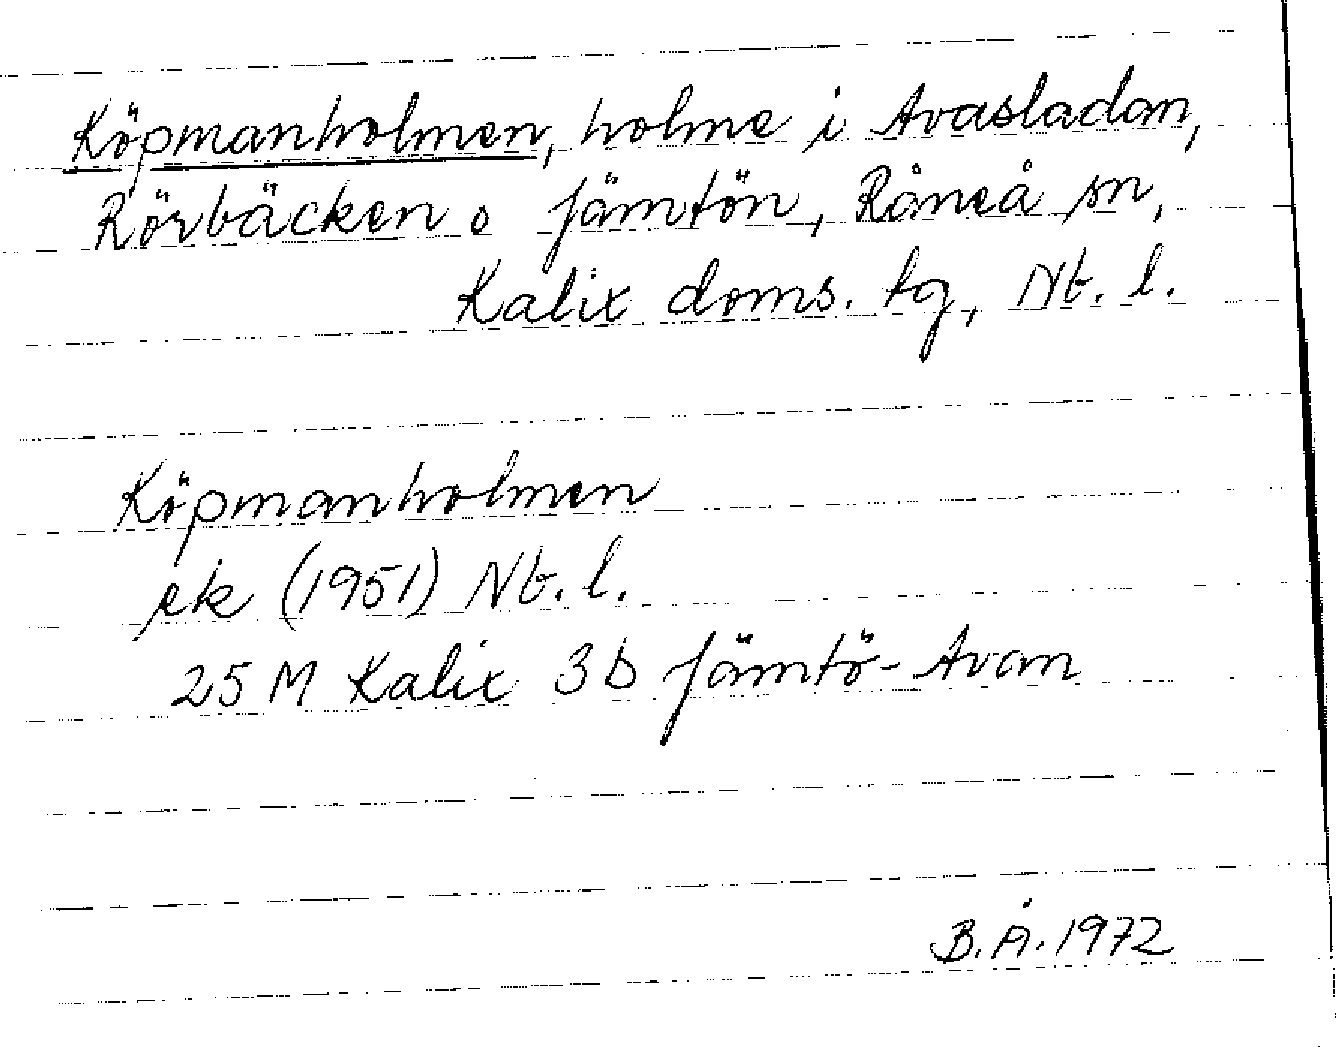 Köpmanholmen, holme i Avasladan,
Rörbäcken o Jämtön, Råneå sn,
Kalix doms. tg, Nb. l.
Köpmanholmen
ek (1951) Nb. l.
25 M Kalix 3b Jämtö-Avan
B. Å. 1972